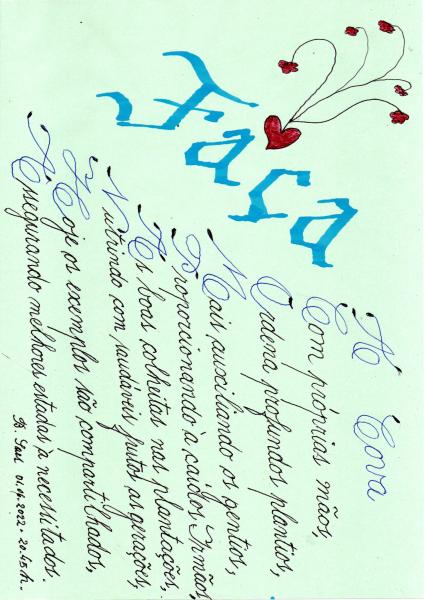 Faça
A Cova
Com próprias mãos,
Ordena profundos plantios,
Mais, auxiliando os gentios,
Proporcionando à caídos Irmãos,
As boas colheitas nas plantações,
Nutrindo com saudáveis frutos as gerações,
Hoje os exemplos são compartilhados,
Assegurando melhores estados à necessitados.
2022 - 20.45.h.-